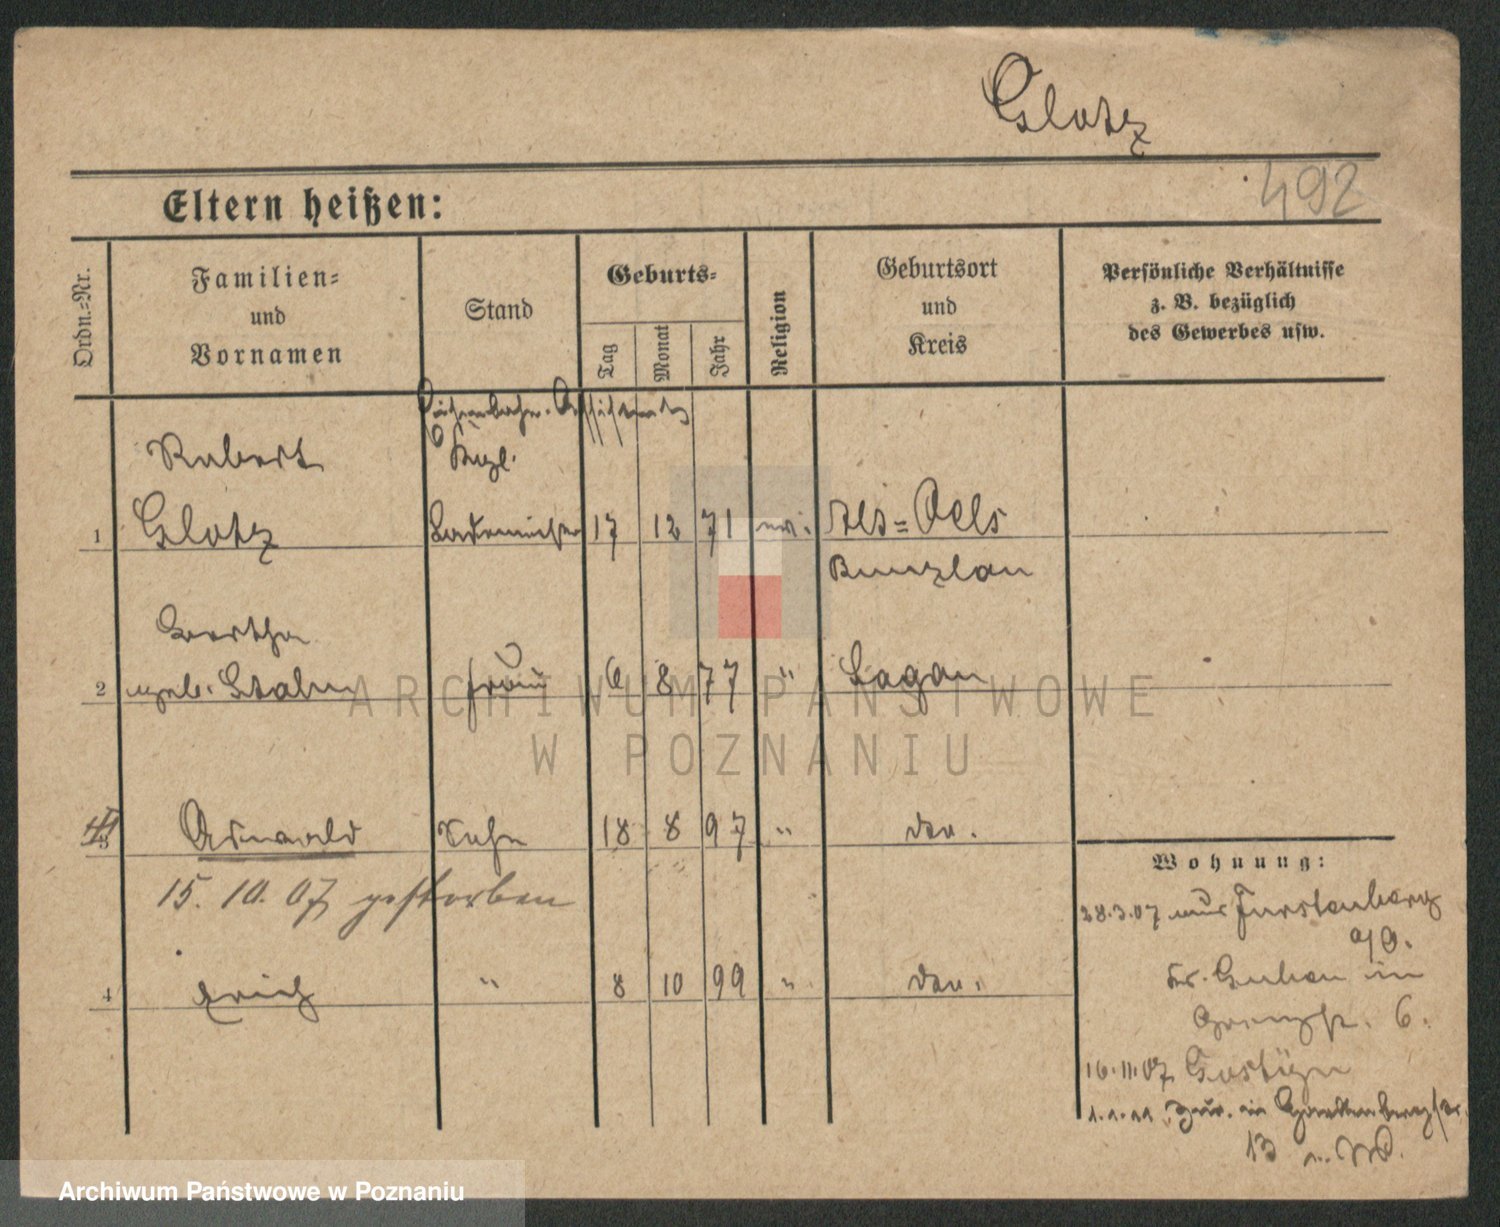 Glotz
492
Eltern heißen:
Ordn.-Nr.
Familien-
und
Vornamen
Stand
Geburts-
Tag
Monat
Jahr
Religion
Geburtsort
und
Kreis
Persönliche Verhältnisse
z. B. bezüglich
des Gewerbes usw.
Robert
1 Glotz 17 12 71 ev. Alt-Oels
Bunzlau
Bertha
2 geb. Frau 6 8 77 " Sagan
3 Oswald Sohn 18 8 97 " do.
15. 10. 07 gestorben
4 Erich " 8 10 99 " do.
Wohnung:
28.3.07 aus Fürstenberg
a/O.
Kr. Guben in
6.
16.11.07 Gostyn
1.1.11 in
13
ARCHIWUM PAŃSTWOWE
W POZNANIU
Archiwum Państwowe w Poznaniu